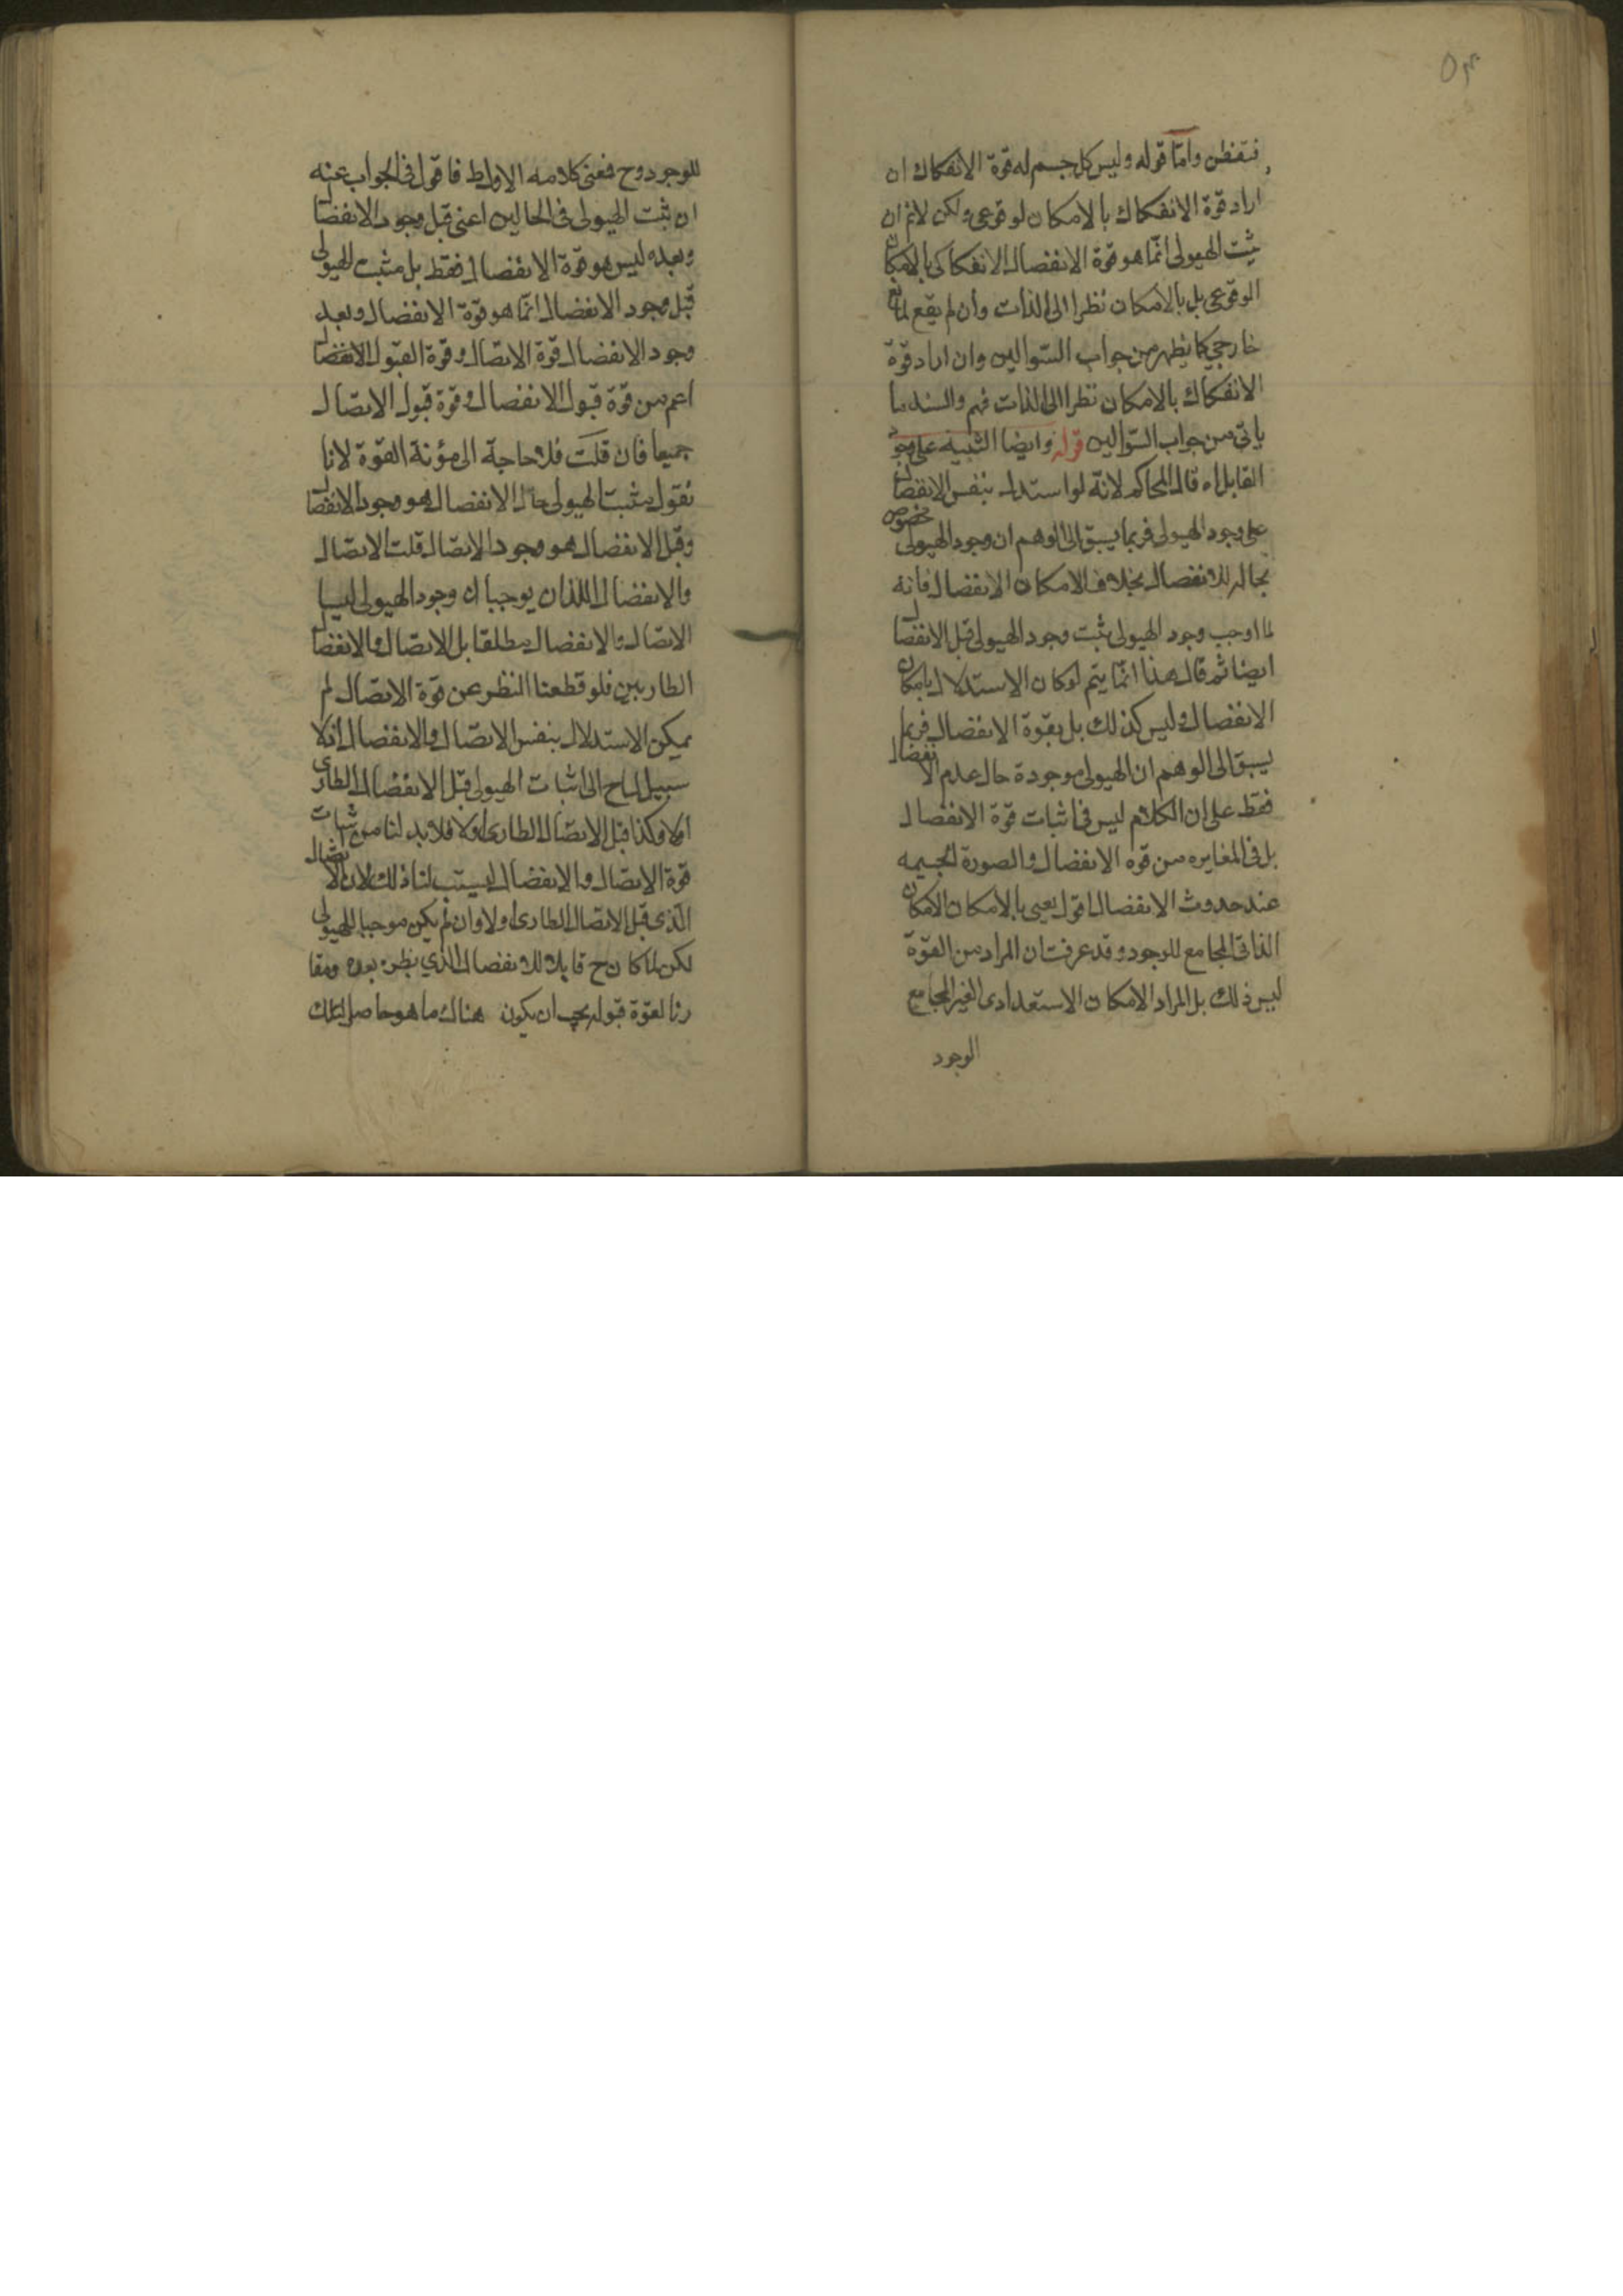 ٥٣
فتفطن واما قوله وليس كل جسم له قوة الانفكاك ان
اراد قوة الانفكاك بالامكان لوقوعى ولكن لانم ان
يثبت الهيولى انما هو قوة الانفصال الانفكاكى بالامكان
الوقوعى بل بالامكان نظرا الى الذات وان لم يقع لمانع
خارجى كما يظهر من جواب السؤالين وان اراد قوة
الانفكاك بالامكان نظرا الى الذات فهم والسند ما
ياتى من جواب السؤالين قوله وايضا التنبيه على وجود
القابل اه قال المحاكم لانه لو استدل بنفس الانفصال
على وجود الهيولى فربما يسبق الى الوهم ان وجود الهيولى مخصوص
بحال الانفصال بخلاف الامكان الانفصال فانه
لما اوجب وجود الهيولى يثبت وجود الهيولى قبل الانفصال
ايضا ثم قال هذا انما يتم لو كان الاستدلال بامكان
الانفصال وليس كذلك بل بقوة الانفصال فربما
يسبق الى الوهم ان الهيولى موجودة حال عدم الانفصال
فقط على ان الكلام ليس فى اثبات قوة الانفصال
بل فى المغايره من قوه الانفصال والصورة الجسيمه
عند حدوث الانفصال اقول يعنى بالامكان الامكان
الذاتى المجامع للوجود وقد عرفت ان المراد من القوة
ليس ذلك بل المراد الامكان الاستعدادى الغير المجامع
الوجود
للوجود وح فمعنى كلامه الاول ط فاقول فى الجواب عنه
ان يثبت الهيولى فى الحالين اعنى قبل وجود الانفصال
وبعده ليس هو قوة الانفصال فقط بل مثبت الهيولى
قبل وجود الانفصال انما هو قوة الانفصال وبعد
وجود الانفصال قوة الاتصال وقوة القبول الانفصال
اعم من قوة قبول الانفصال وقوة قبول الاتصال
جميعا فان قلت فلا حاجة الى مؤنة القوة لانا
نقول مثبت الهيولى حال الانفصال هو وجود الانفصال
وقبل الانفصال هو وجود الاتصال قلت الاتصال
والانفصال اللذان يوجبان وجود الهيولى ليسا
الاتصال والانفصال مطلقا بل الاتصال والانفصال
الطاريين فلو قطعنا النظر عن قوة الاتصال لم
يمكن الاستدلال بنفس الاتصال والانفصال اذ لا
سبيل لنا ح الى اثبات الهيولى قبل الانفصال الطارى
اولا وكذا قبل الاتصال الطارى اولا فلا بد لنا من اثبات
قوة الاتصال والانفصال ليستتب لنا ذلك لان الاتصال
الذى قبل الاتصال الطارى اولا وان لم يكن موجبا للهيولى
لكن لما كان ح قابلا للانفصال الذي يطرء بعده ومقا
رنا لقوة قبوله يجب ان يكون هناك ما هو حاصل لتلك